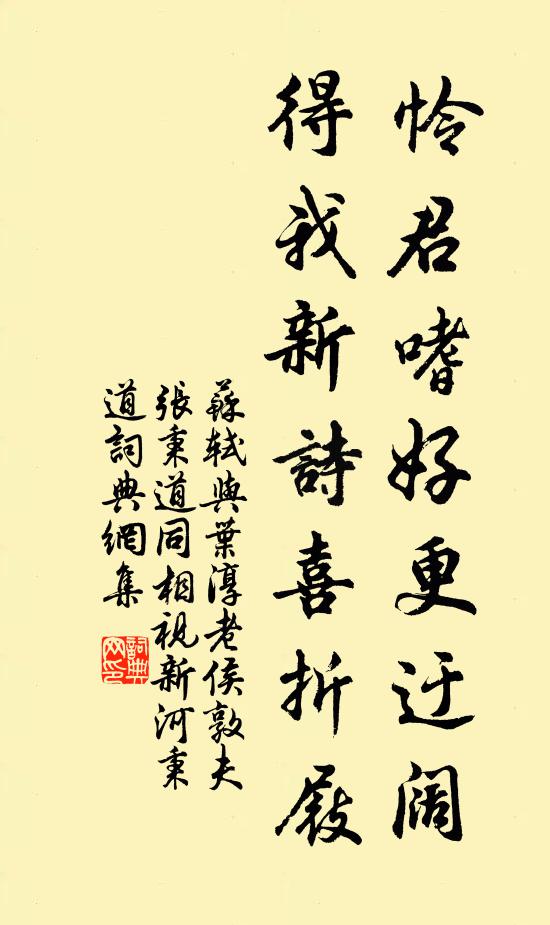 怜君嗜好更迂阔
得我新詩喜折屐
蘇軾與葉淳老侯敦夫
張秉道同相視新河秉
道詞典網集
詞典
网印